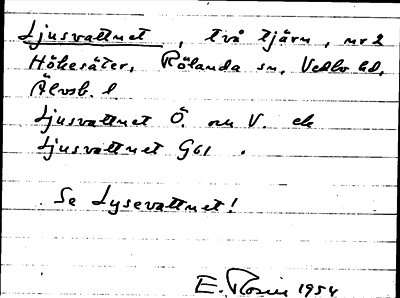 Ljusvattnet, två tjärn, nr 2
Hökesäter, Rölanda sn, Vedbo hd,
Älvsb. l
Ljusvattnet Ö. och V. ek
Ljusvattnet G61.
Se Lysevattnet!
E. Rosén 1954